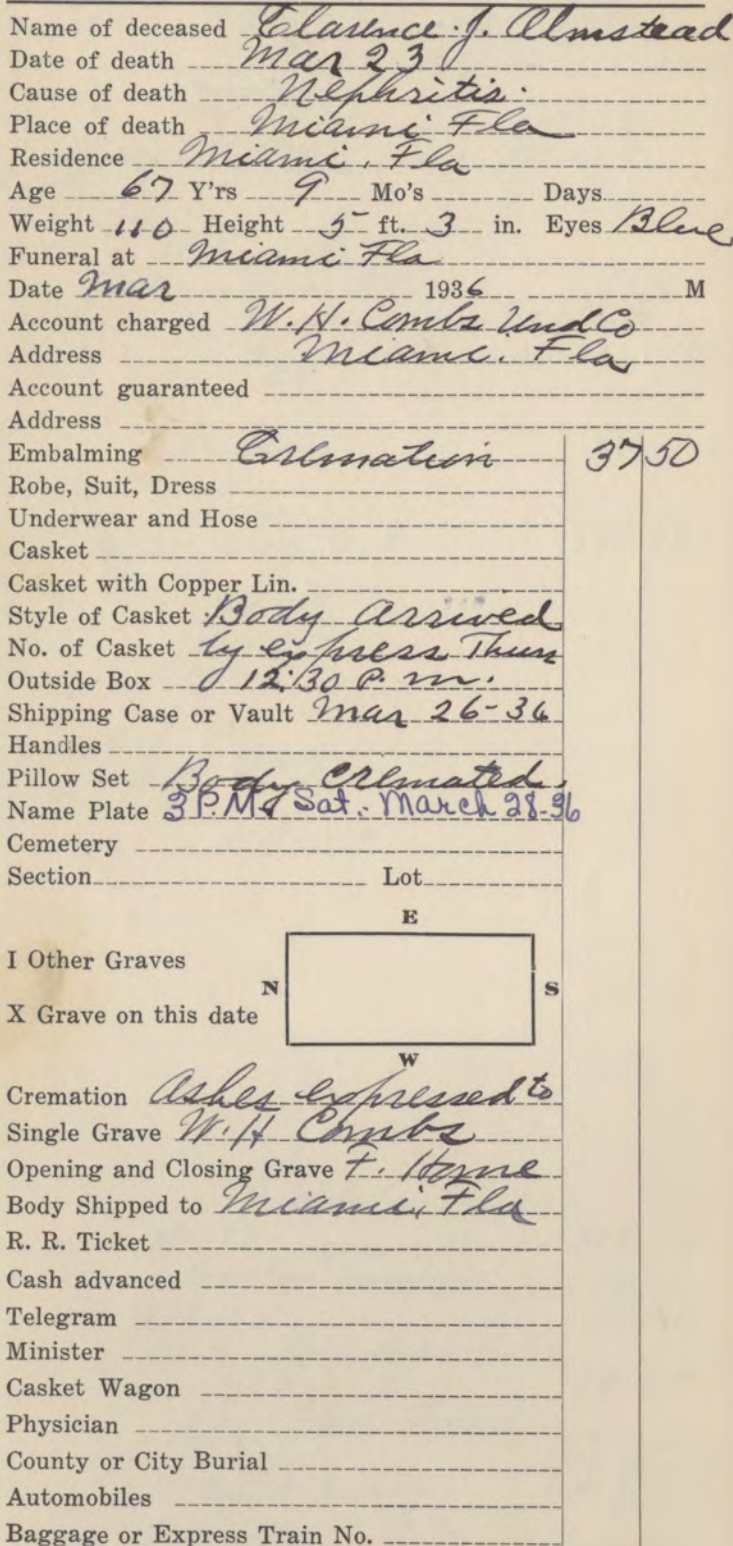 Name of deceased Clarence J. Olmstead
Date of death Mar 23
Cause of death Nephritis.
Place of death Miami Fla
Residence Miami, Fla
Age 67 Y'rs 9 Mo's Days
Weight 110 Height 5 ft. 3 in. Eyes Blue
Funeral at Miami Fla
Date Mar 1936 M
Account charged W. H. Combs Und Co
Address Miami, Fla
Account guaranteed
Address
Embalming Cremation 37 50
Robe, Suit, Dress
Underwear and Hose
Casket
Casket with Copper Lin.
Style of Casket Body arrived
No. of Casket by express Thurs
Outside Box 12:30 P. m.
Shipping Case or Vault Mar 26-36
Handles
Pillow Set Body Cremated.
Name Plate 3 P.M. Sat. March 28-36
Cemetery
Section Lot
E
I Other Graves
N S
X Grave on this date
W
Cremation Ashes expressed to
Single Grave W. H Combs
Opening and Closing Grave F. Home
Body Shipped to Miami, Fla
R. R. Ticket
Cash advanced
Telegram
Minister
Casket Wagon
Physician
County or City Burial
Automobiles
Baggage or Express Train No.